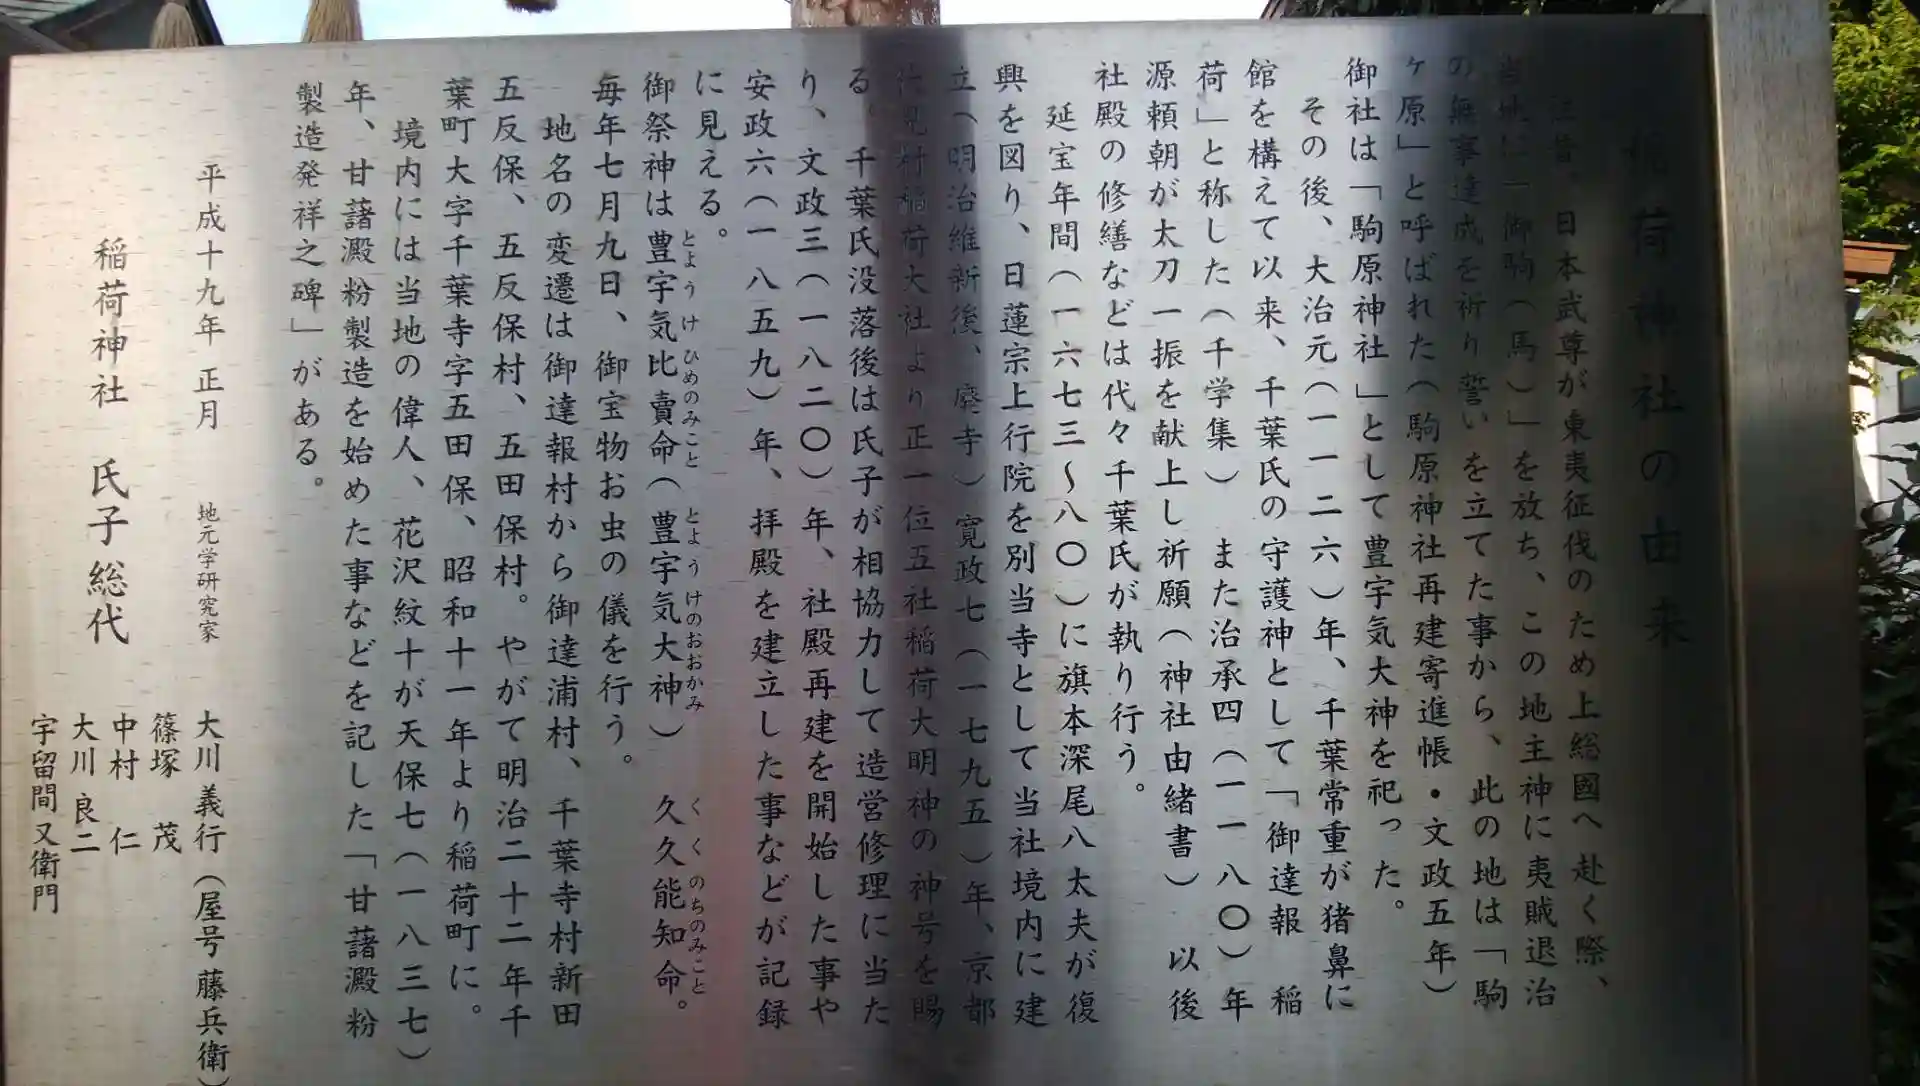 稲荷神社の由来
往昔、日本武尊が東夷征伐のため上総國へ赴く際、
当地に「御駒(馬)」を放ち、この地主神に夷賊退治
の無事達成を祈り誓いを立てた事から、此の地は「駒
ヶ原」と呼ばれた(駒原神社再建寄進帳・文政五年)
御社は「駒原神社」として豊宇気大神を祀った。
その後、大治元(一一二六)年、千葉常重が猪鼻に
館を構えて以来、千葉氏の守護神として「御達報 稲
荷」と称した(千学集) また治承四(一一八〇)年
源頼朝が太刀一振を献上し祈願(神社由緒書) 以後
社殿の修繕などは代々千葉氏が執り行う。
延宝年間(一六七三~八〇)に旗本深尾八太夫が復
興を図り、日蓮宗上行院を別当寺として当社境内に建
立(明治維新後、廃寺)寛政七(一七九五)年、京都
伏見村稲荷大社より正一位五社稲荷大明神の神号を賜
る。千葉氏没落後は氏子が相協力して造営修理に当た
り、文政三(一八二〇)年、社殿再建を開始した事や
安政六(一八五九)年、拝殿を建立した事などが記録
に見える。
御祭神は豊宇気比賣命(豊宇気大神) 久久能知命。
とようけ ひめのみこと とようけのおおかみ くくのちのみこと
毎年七月九日、御宝物お虫の儀を行う。
地名の変遷は御達報村から御達浦村、千葉寺村新田
五反保、五反保村、五田保村。やがて明治二十二年千
葉町大字千葉寺字五田保、昭和十一年より稲荷町に。
境内には当地の偉人、花沢紋十が天保七(一八三七)
年、甘藷澱粉製造を始めた事などを記した「甘藷澱粉
製造発祥之碑」がある。
平成十九年 正月 地元学研究家 大川義行(屋号藤兵衛)
稲荷神社 氏子総代 篠塚 茂
中村 仁
大川良二
宇留間又衛門